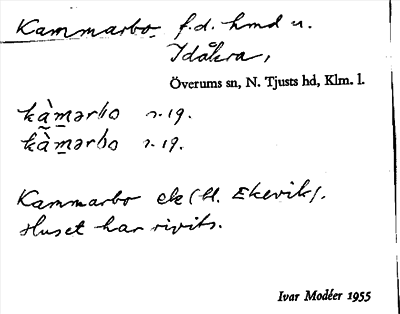 Kammarbo, f.d. hmd u.
Idåkra,
Överums sn, N. Tjusts hd, Klm. l.
kàmərbo r.19.
kàmərbo r.19.
Kammarbo ek (bl. Ekevik).
Huset har rivits.
Ivar Modéer 1955